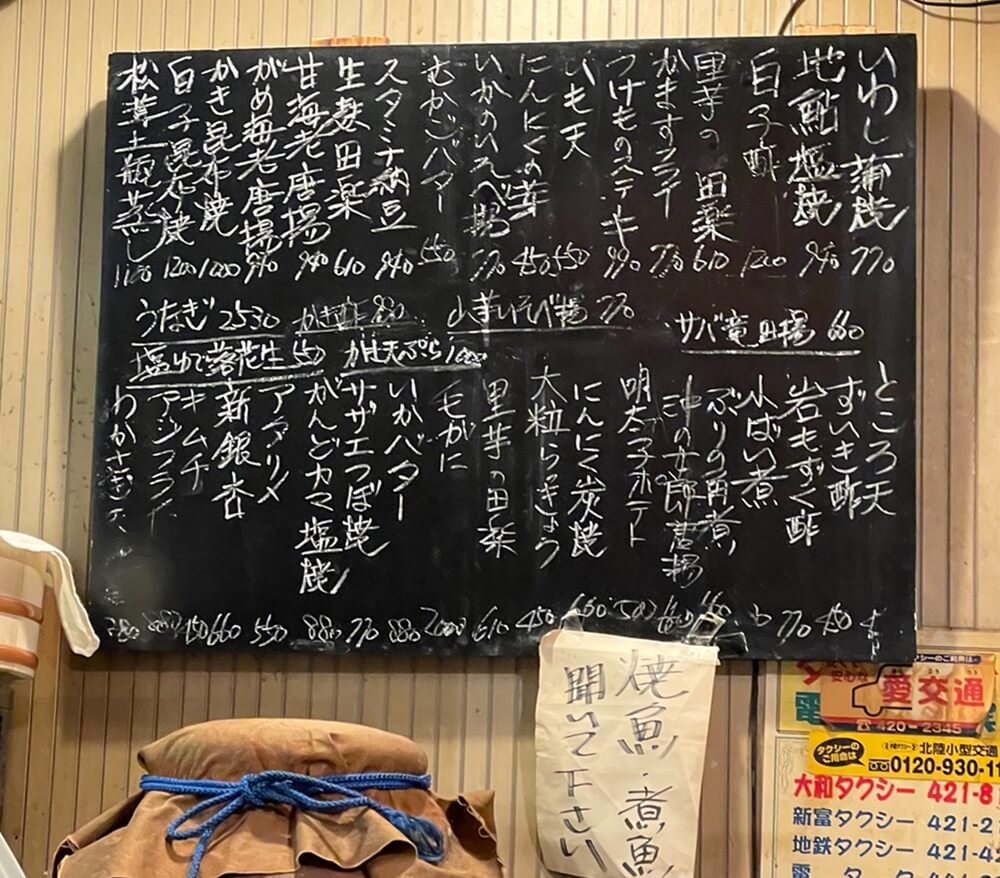 いわし蒲焼 770
地鮎塩焼 940
白子酢 1200
里芋の田楽 610
かますフライ 770
つけものステーキ 990
いも天 550
にんにくの芽 450
いかのいそべ揚 770
むかごバター 550
スタミナ納豆 940
生麩田楽 610
甘海老唐揚 940
がめ海老唐揚 940
かき昆布焼 1000
白子昆布焼 1200
松茸土瓶蒸し 1100
うなぎ 2530
かき酢 880
山芋いそび揚 770
サバ竜田揚 660
塩ゆで落花生 550
かき天ぷら 1000
ところ天
ずいき酢 450
岩もずく酢 770
小ばい煮
ぶりの角煮
沖の女郎唐揚 660
明太子ポテト 500
にんにく炭焼 660
大粒らっきょう 450
里芋の田楽 610
毛がに 2000
いかバター 880
サザエつぼ焼 770
がんどカマ塩焼 880
アタリメ 550
新銀杏 660
キムチ 450
アジフライ
わかさぎ天
焼魚・煮魚
聞いて下さい
愛交通
☎420-2345
タクシーのご用命は
北陸小型交通
0120-930-11
大和タクシー 421-8
新富タクシー 421-2
地鉄タクシー 421-4